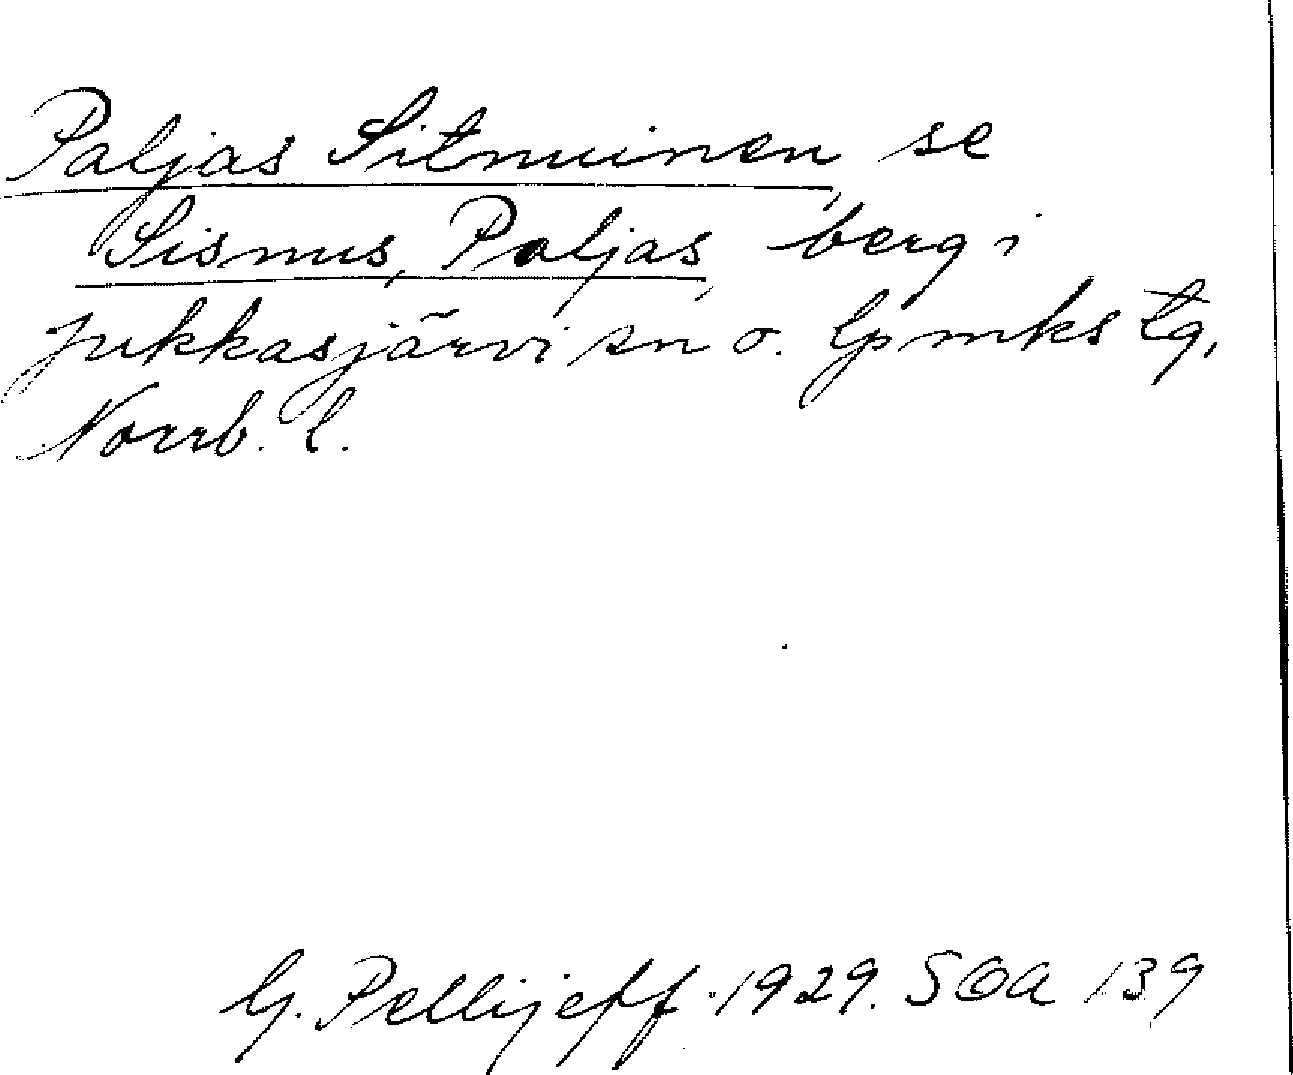 Paljas Sitnuinen, se
Sismus, Paljas, berg i
Jukkasjärvi sn o. lpmks tg,
Norrb. l.
G. Pellijeff 1929. SOA 139